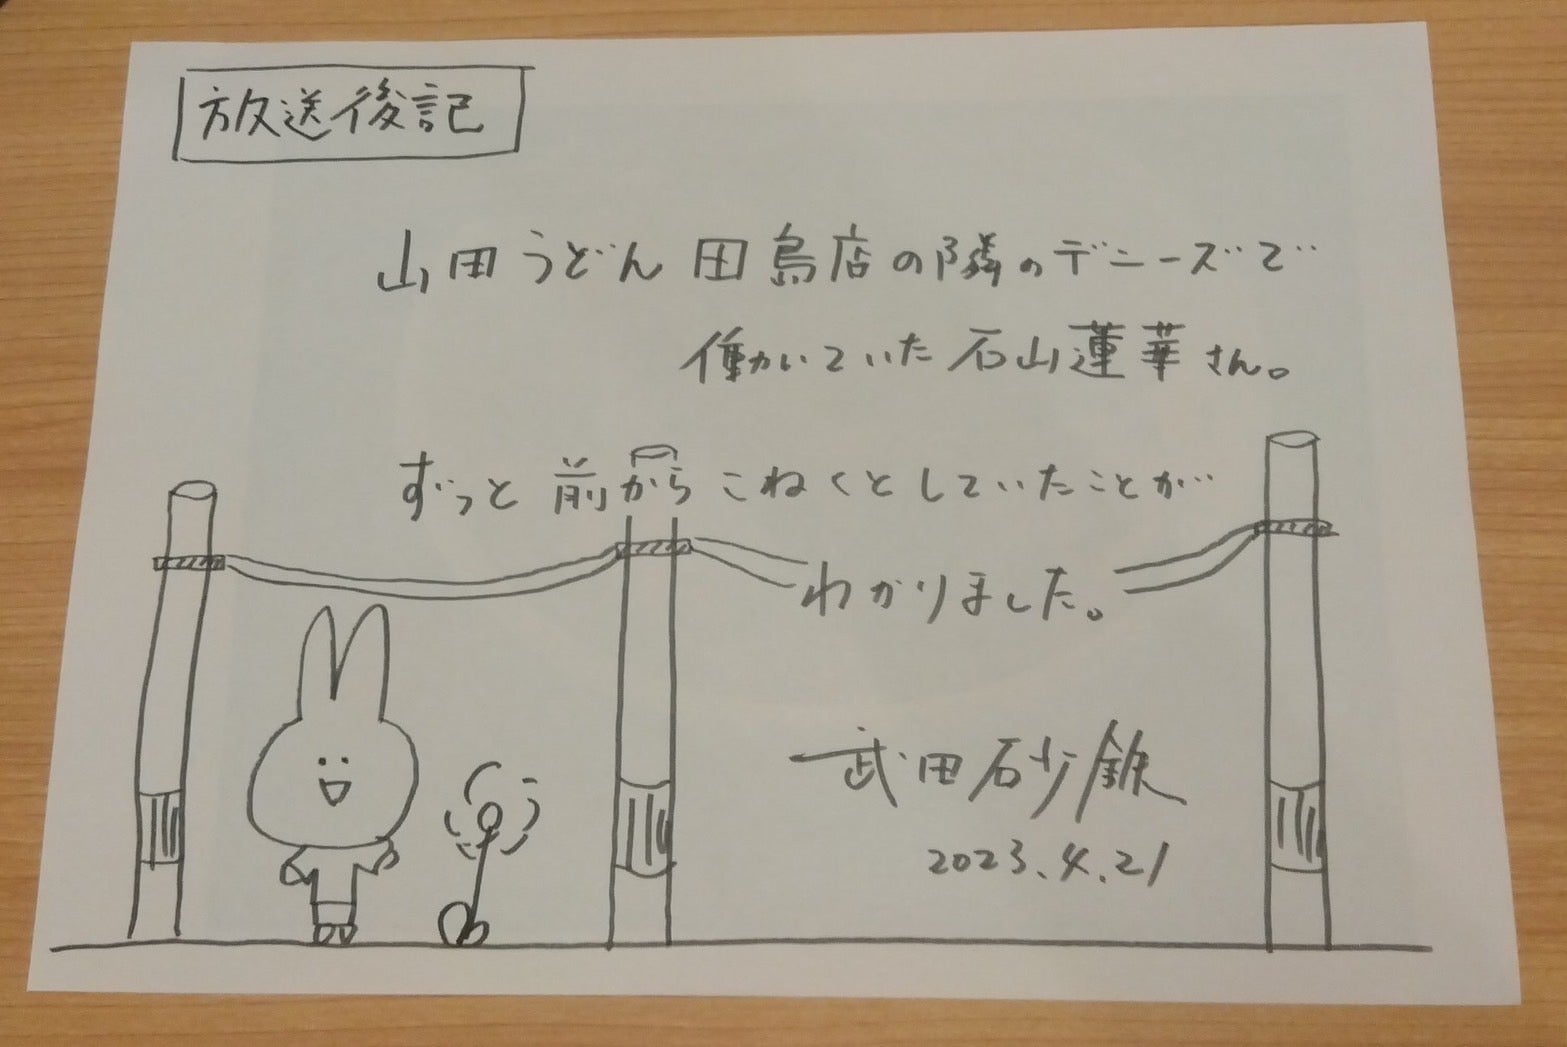 放送後記
山田うどん田島店の隣のデニーズで
働いていた石山蓮華さん。
ずっと前からこねくとしていたことが
わかりました。
武田砂鉄
2023.4.21